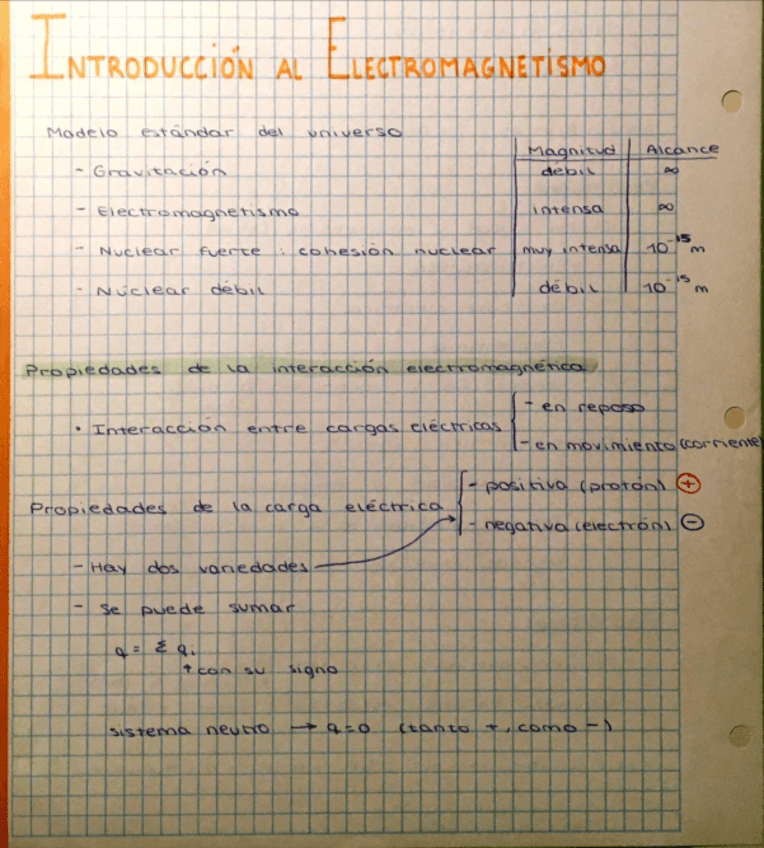 INTRODUCCIÓN AL ELECTROMAGNETISMO
Modelo estándar del universo
Magnitud | Alcance
- Gravitación | débil | ∞
- Electromagnetismo | intensa | ∞
- Nuclear fuerte : cohesión nuclear | muy intensa | 10⁻¹⁵ m
- Nuclear débil | débil | 10⁻¹⁵ m
Propiedades de la interacción electromagnética
· Interacción entre cargas eléctricas
- en reposo
- en movimiento (corriente)
Propiedades de la carga eléctrica
- positiva (protón) ⊕
- negativa (electrón) ⊖
- Hay dos variedades
- Se puede sumar
q = Σ qᵢ
↑ con su signo
sistema neutro → q=0 (tanto +, como -)